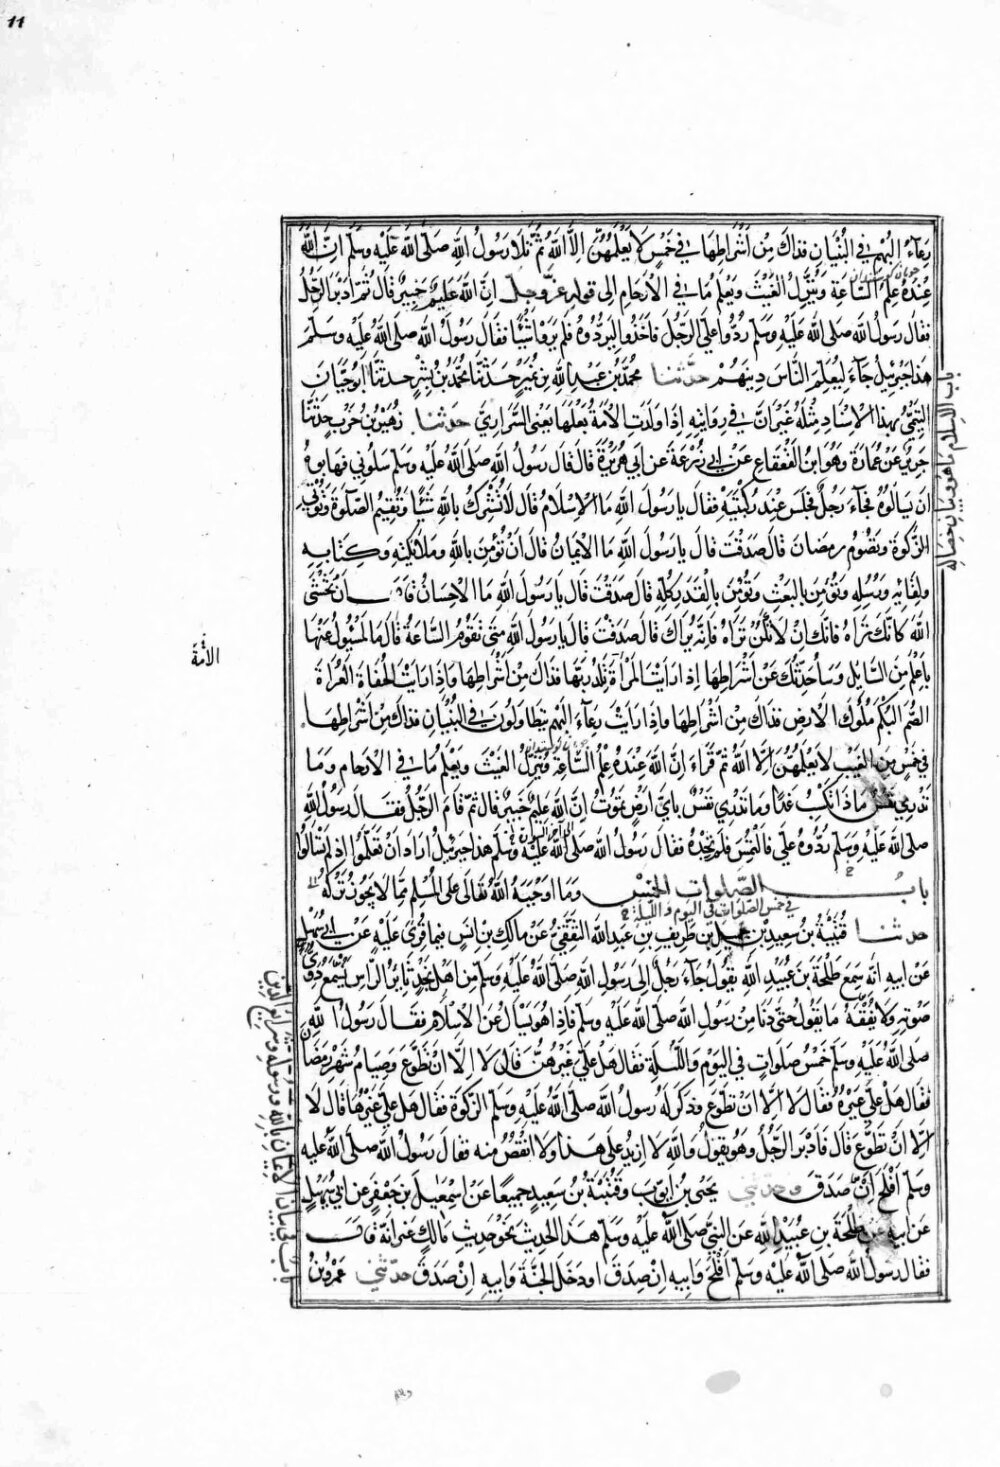 11
رعاء البهم في البنيان فذاك من أشراطها في خمس لا يعلمهن إلا الله ثم تلا رسول الله صلى الله عليه وسلم ان الله
عنده علم الساعة وينزل الغيث ويعلم ما في الأرحام إلى قوله عز وجل إن الله عليم خبير قال ثم ادبر الرجل
فقال رسول الله صلى الله عليه وسلم ردوا علي الرجل فاخذوا ليردوه فلم يروا شيئا فقال رسول الله صلى الله عليه وسلم
هذا جبرئيل جاء ليعلم الناس دينهم حدثنا محمد بن عبد الله بن نمير حدثنا محمد بن بشر حدثنا ابو حيان
التيمي بهذا الاسناد مثله غير ان في روايته إذا ولدت الأمة بعلها يعنى السراري حدثنا زهير بن حرب حدثنا
جرير عن عمارة وهو ابن القعقاع عن ابي زرعة عن ابي هريرة قال قال رسول الله صلى الله عليه وسلم سلوني فهابوه
ان يسالوه فجاء رجل فجلس عند ركبتيه فقال يا رسول الله ما الاسلام قال لا تشرك بالله شيئا وتقيم الصلوة وتؤتي
الزكوة وتصوم رمضان قال صدقت قال يا رسول الله ما الايمان قال ان تؤمن بالله وملائكته وكتابه
ولقائه ورسله وتؤمن بالبعث وتؤمن بالقدر كله قال صدقت قال يا رسول الله ما الاحسان قال ان تخشى
الله كانك تراه فانك ان لا تكن تراه فانه يراك قال صدقت قال يا رسول الله متى تقوم الساعة قال ما المسئول عنها
باعلم من السائل وساحدثك عن أشراطها إذا رايت المرأة تلد ربها فذاك من أشراطها وإذا رايت الحفاة العراة
الصم البكم ملوك الارض فذاك من اشراطها وإذا رايت رعاء البهم يتطاولون في البنيان فذاك من اشراطها
في خمس من الغيب لا يعلمهن إلا الله ثم قراء ان الله عنده علم الساعة وينزل الغيث ويعلم ما في الارحام وما
تدري نفس ماذا تكسب غدا وما تدري نفس باي ارض تموت ان الله عليم خبير قال ثم قام الرجل فقال رسول الله
صلى الله عليه وسلم ردوه علي فالتمس فلم يجدوه فقال رسول الله صلى الله عليه وسلم هذا جبرئيل اراد ان تعلموا إذ لم تسالوا
باب الصلوات الخمس وما اوجبه الله تعالى على المسلم مما لا يجوز تركه
في خمس الصلوات في اليوم والليلة
حدثنا قتيبة بن سعيد بن جميل بن طريف بن عبد الله الثقفي عن مالك بن انس فيما قرئ عليه عن ابي سهيل
عن ابيه انه سمع طلحة بن عبيد الله يقول جاء رجل الى رسول الله صلى الله عليه وسلم من اهل نجد ثائر الراس يسمع دوي
صوته ولا يفقه ما يقول حتى دنا من رسول الله صلى الله عليه وسلم فإذا هو يسأل عن الاسلام فقال رسول الله
صلى الله عليه وسلم خمس صلوات في اليوم والليلة فقال هل علي غيرهن قال لا إلا ان تطوع وصيام شهر رمضان
فقال هل علي غيره فقال لا إلا ان تطوع وذكر له رسول الله صلى الله عليه وسلم الزكوة فقال هل علي غيرها قال لا
إلا ان تطوع قال فادبر الرجل وهو يقول والله لا ازيد على هذا ولا انقص منه فقال رسول الله صلى الله عليه
وسلم افلح ان صدق وحدثني يحيى بن ايوب وقتيبة بن سعيد جميعا عن اسمعيل بن جعفر عن ابي سهيل
عن ابيه عن طلحة بن عبيد الله عن النبي صلى الله عليه وسلم هذا الحديث نحو حديث مالك غير انه قال
فقال رسول الله صلى الله عليه وسلم افلح وابيه ان صدق او دخل الجنة وابيه ان صدق حدثني عمرو بن
باب الاسلام ما هو وبيان خصاله
الأمة
باب في بيان الايمان بالله ورسوله وشرايع الدين